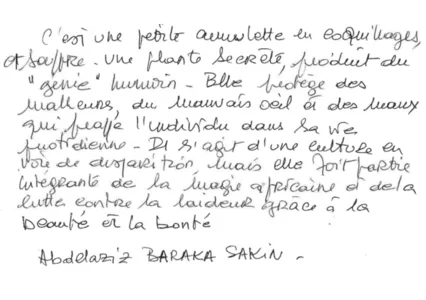 C'est une petite amulette en coquillages,
et souffre. Une plante secrète, produit du
"génie" humain - Elle protège des
malheurs, du mauvais oeil et des maux
qui frappe l'individu dans sa vie
quotidienne - Il s'agit d'une culture en
voie de disparition, mais elle fait partie
intégrante de la magie africaine et de la
lutte contre la laideur grâce à la
beauté et la bonté
Abdelaziz BARAKA SAKIN -